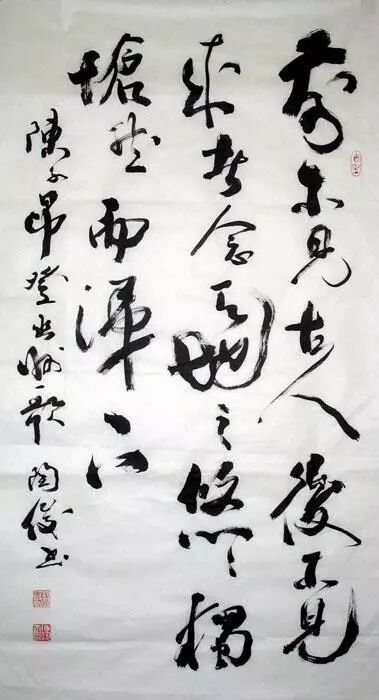 前不見古人後不見
来者念天地之悠々獨
愴然而涕下
陳子昂登幽州歌 陶俊書